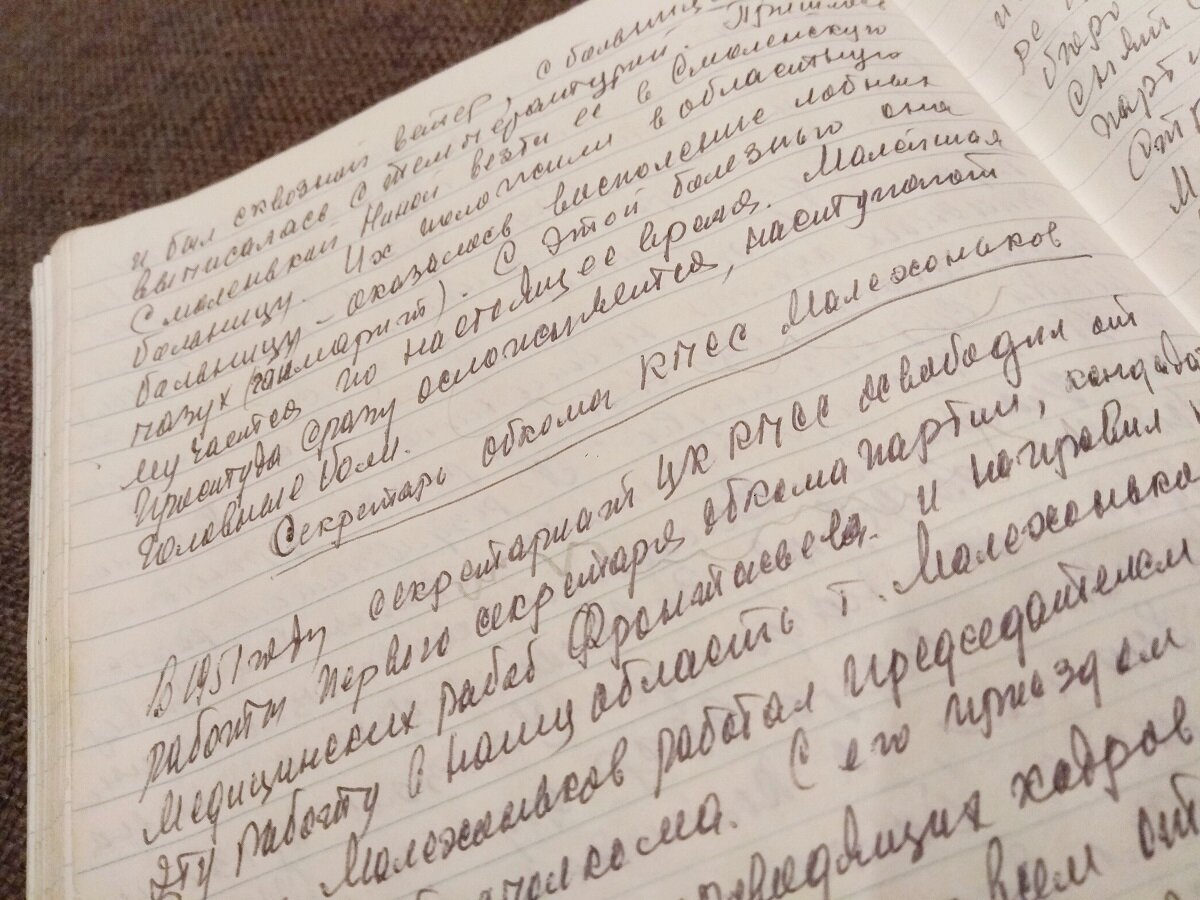 и был сквозной ветер, с больницы
выписалась с температурой. Пришлось
Смоленской Ниной везти ее в Смоленскую
больницу. Их положили в областную
больницу - оказалось воспаление лобных
пазух (гайморит). С этой болезнью она
мучается по настоящее время. Малейшая
простуда сразу осложняется, наступают
головные боли.
Секретарь обкома КПСС Малехоньков
В 1951 году секретариат ЦК КПСС освободил от
работы первого секретаря обкома партии, кандидат
медицинских работ Фронтасьева. и направил
эту работу в нашу область т. Малехонько
Малехоньков работал председателем
С его приездом
кадров
всем